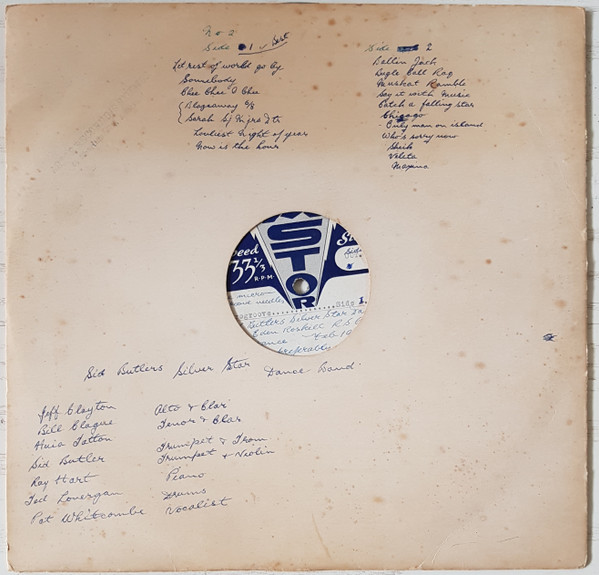 No 2
Side 1 ✓ Best
Let rest of world go by
Somebody
Chee Chee O Chee
Blaze away 6/8
Sarah
Loveliest Night of year
Now is the hour
Side 2
Ballin Jack
Bugle Call Rag
Muskrat Ramble
Say it with Music
Catch a falling star
Chicago
- Only man on island
Who's sorry now
Sheik
Veleta
Maxina
STOR
33 1/3
R.P.M.
Side 1.
Butlers Silver Star
Eden Roskill R.S.
preferably
Sid Butlers Silver Star Dance Band
Jeff Clayton Alto & Clar
Bill Clague Tenor & Clar
Huia Tatton Trumpet & Trom
Sid Butler Trumpet & Violin
Ray Hart Piano
Ted Lonergan Drums
Pat Whitcombe Vocalist